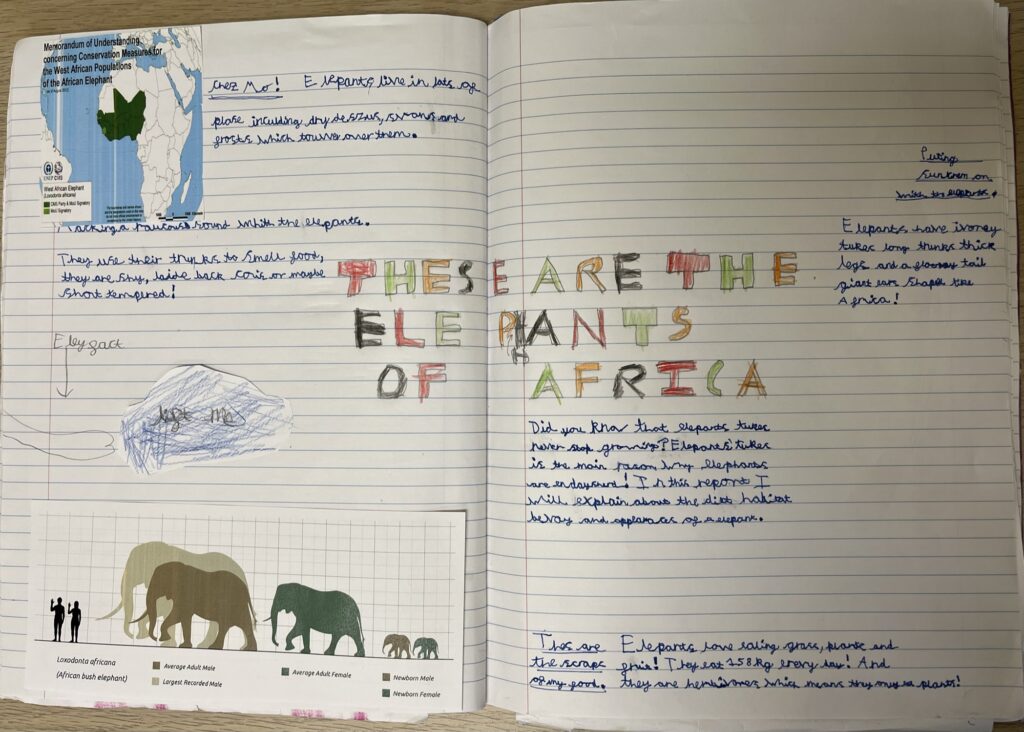 Memorandum of Understanding
concerning Conservation Measures for
the West African Populations
of the African Elephant
UNEP CMS
West African Elephant
(Loxodonta africana)
CMS Party & MoU Signatory
MoU Signatory
Chez Mo! Elepants live in lots of
plase inculding dry
and
which over them.
a round whith the elepants.
They use their thunks to smell food,
they are shy, laide back or maybe
short tempered!
THESE ARE THE
ELEPHANTS
OF AFRICA
Puting
on
Elepants have ivorey
tukes long thunks thick
legs and a tail
giant ears shaped like
Africa!
E by gact
Did you know that elepants tukes
never stop growing? Elepants' tukes
is the main rason why elephants
are! In this report I
will explain about the diet habitat
and of a elepant.
These are
the scraps
of my food.
Elepants love eating grass, plants and
! They eat 158 kg every day! And
they are herbivores which means they only plants!
Loxodonta africana
(African bush elephant)
Average Adult Male
Largest Recorded Male
Average Adult Female
Newborn Male
Newborn Female